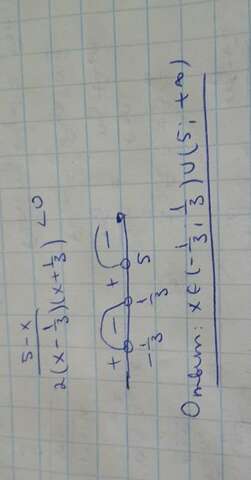 5-x / 2(x-1/3)(x+1/3) <0
+ - + -
-1/3 1/3 5
Ответ: x∈(-1/3; 1/3)∪(5; +∞)